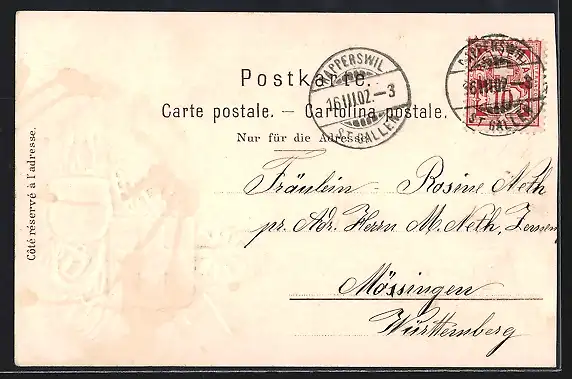 Postkarte.
Carte postale. — Cartolina postale.
Nur für die Adresse.
Côté réservé à l'adresse.
RAPPERSWIL
16.III.02.—3
ST. GALLEN
RAPPERSWIL
16.III.02.—3
ST. GALLEN
Fräulein Rosine Neth
pr. Adr. Herrn M. Neth,
Mössingen
Württemberg